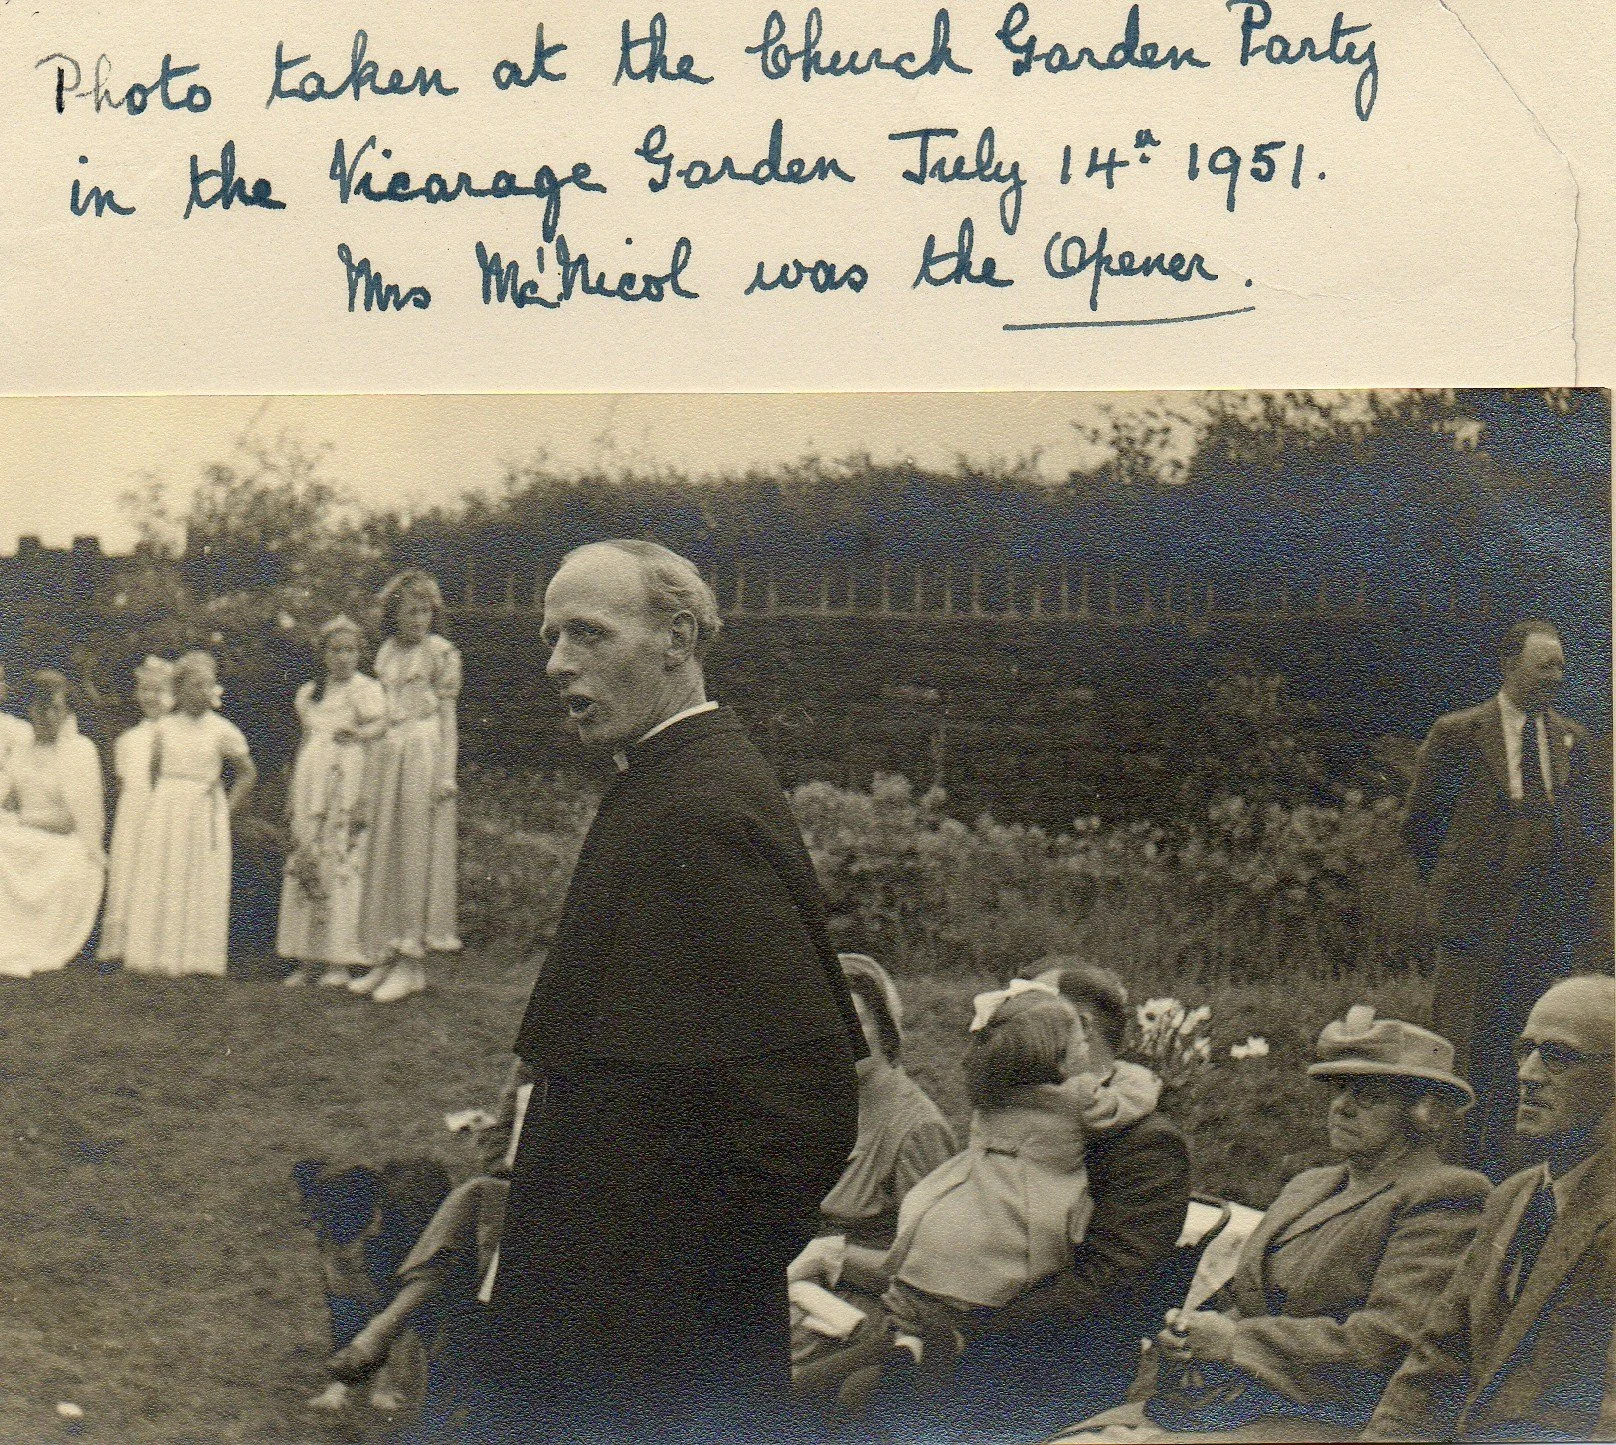 Photo taken at the Church Garden Party
in the Vicarage Garden July 14th 1951.
Mrs Mc'Nicol was the Opener.